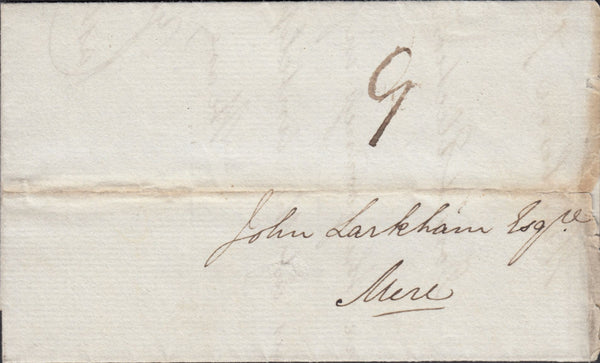 9
John Larkham Esqre
Mere